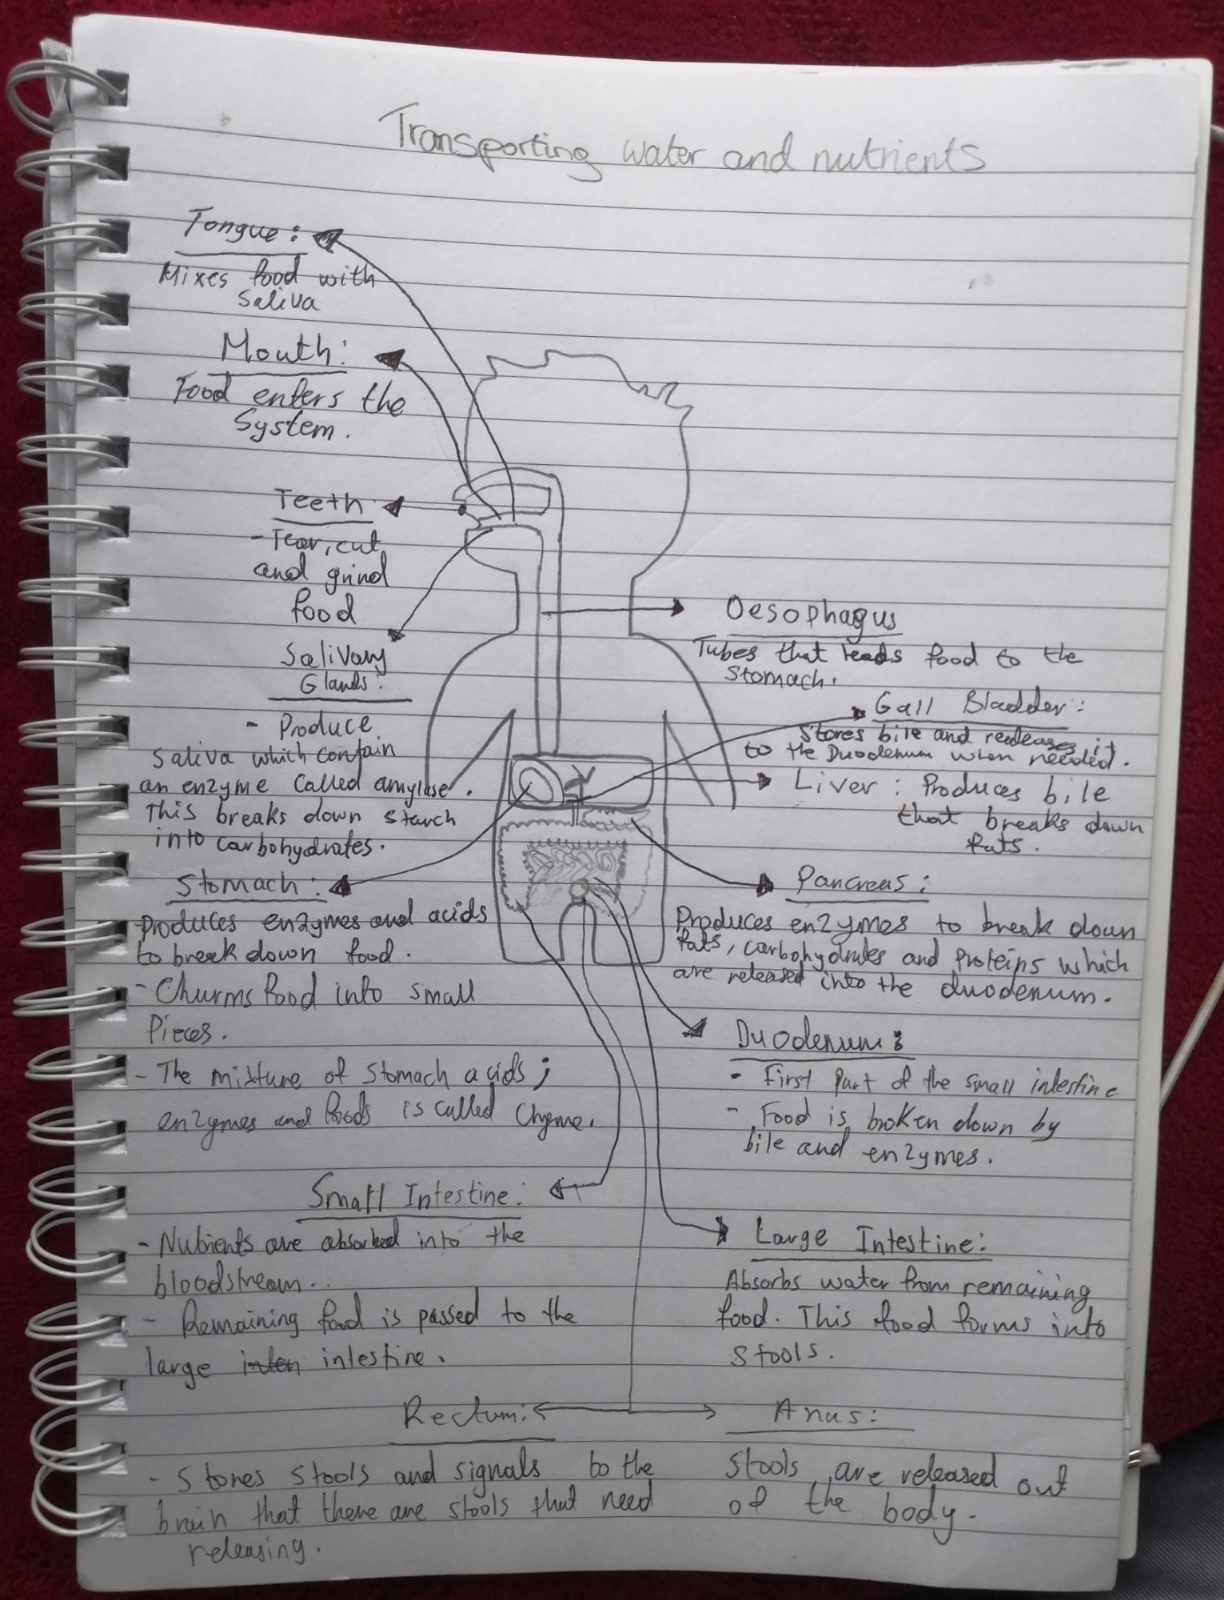 Transporting water and nutrients
Tongue:
Mixes food with
Saliva
Mouth:
Food enters the
System.
Teeth
- Tear, cut
and grind
food
Salivary
Glands:
- Produce
Saliva which contain
an enzyme called amylase.
This breaks down starch
into carbohydrates.
Stomach:
Produces enzymes and acids
to break down food.
- Churns food into small
Pieces.
- The mixture of stomach acids;
enzymes and foods is called Chyme.
Small Intestine:
- Nutrients are absorbed into the
bloodstream.
- Remaining food is passed to the
large inten intestine.
Rectum:
- Stores stools and signals to the
brain that there are stools that need
releasing.
Oesophagus
Tubes that leads food to the
Stomach.
Gall Bladder:
Stores bile and releases it
to the Duodenum when needed.
Liver: Produces bile
that breaks down
fats.
Pancreas:
Produces enzymes to break down
fats, carbohydrates and proteins which
are released into the duodenum.
Duodenum:
- First part of the small intestine
- Food is broken down by
bile and enzymes.
Large Intestine:
Absorbs water from remaining
food. This food forms into
stools.
Anus:
Stools are released out
of the body.